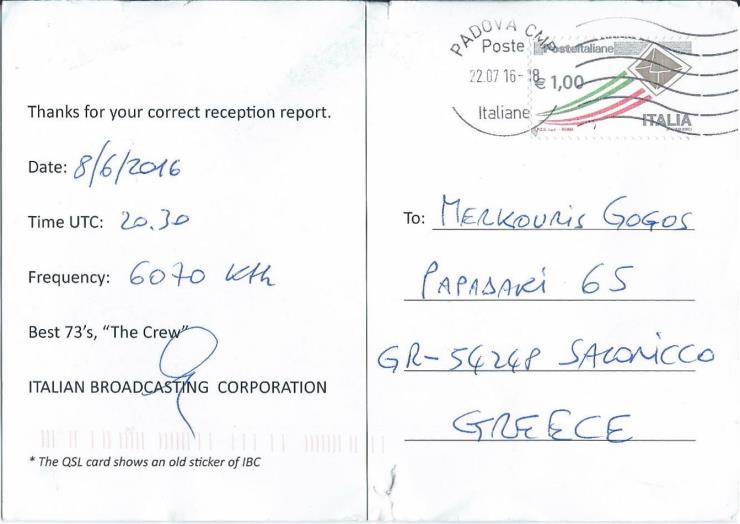 Thanks for your correct reception report.
Date: 8/6/2016
Time UTC: 20.30
Frequency: 6070 KHz
Best 73's, "The Crew"
ITALIAN BROADCASTING CORPORATION
* The QSL card shows an old sticker of IBC
PADOVA CMP
Poste
22.07 16-18
Italiane
Posteitaliane
€ 1,00
ITALIA
To: MERKOURIS GOGOS
PAPADAKI 65
GR-54248 SALONICCO
GREECE